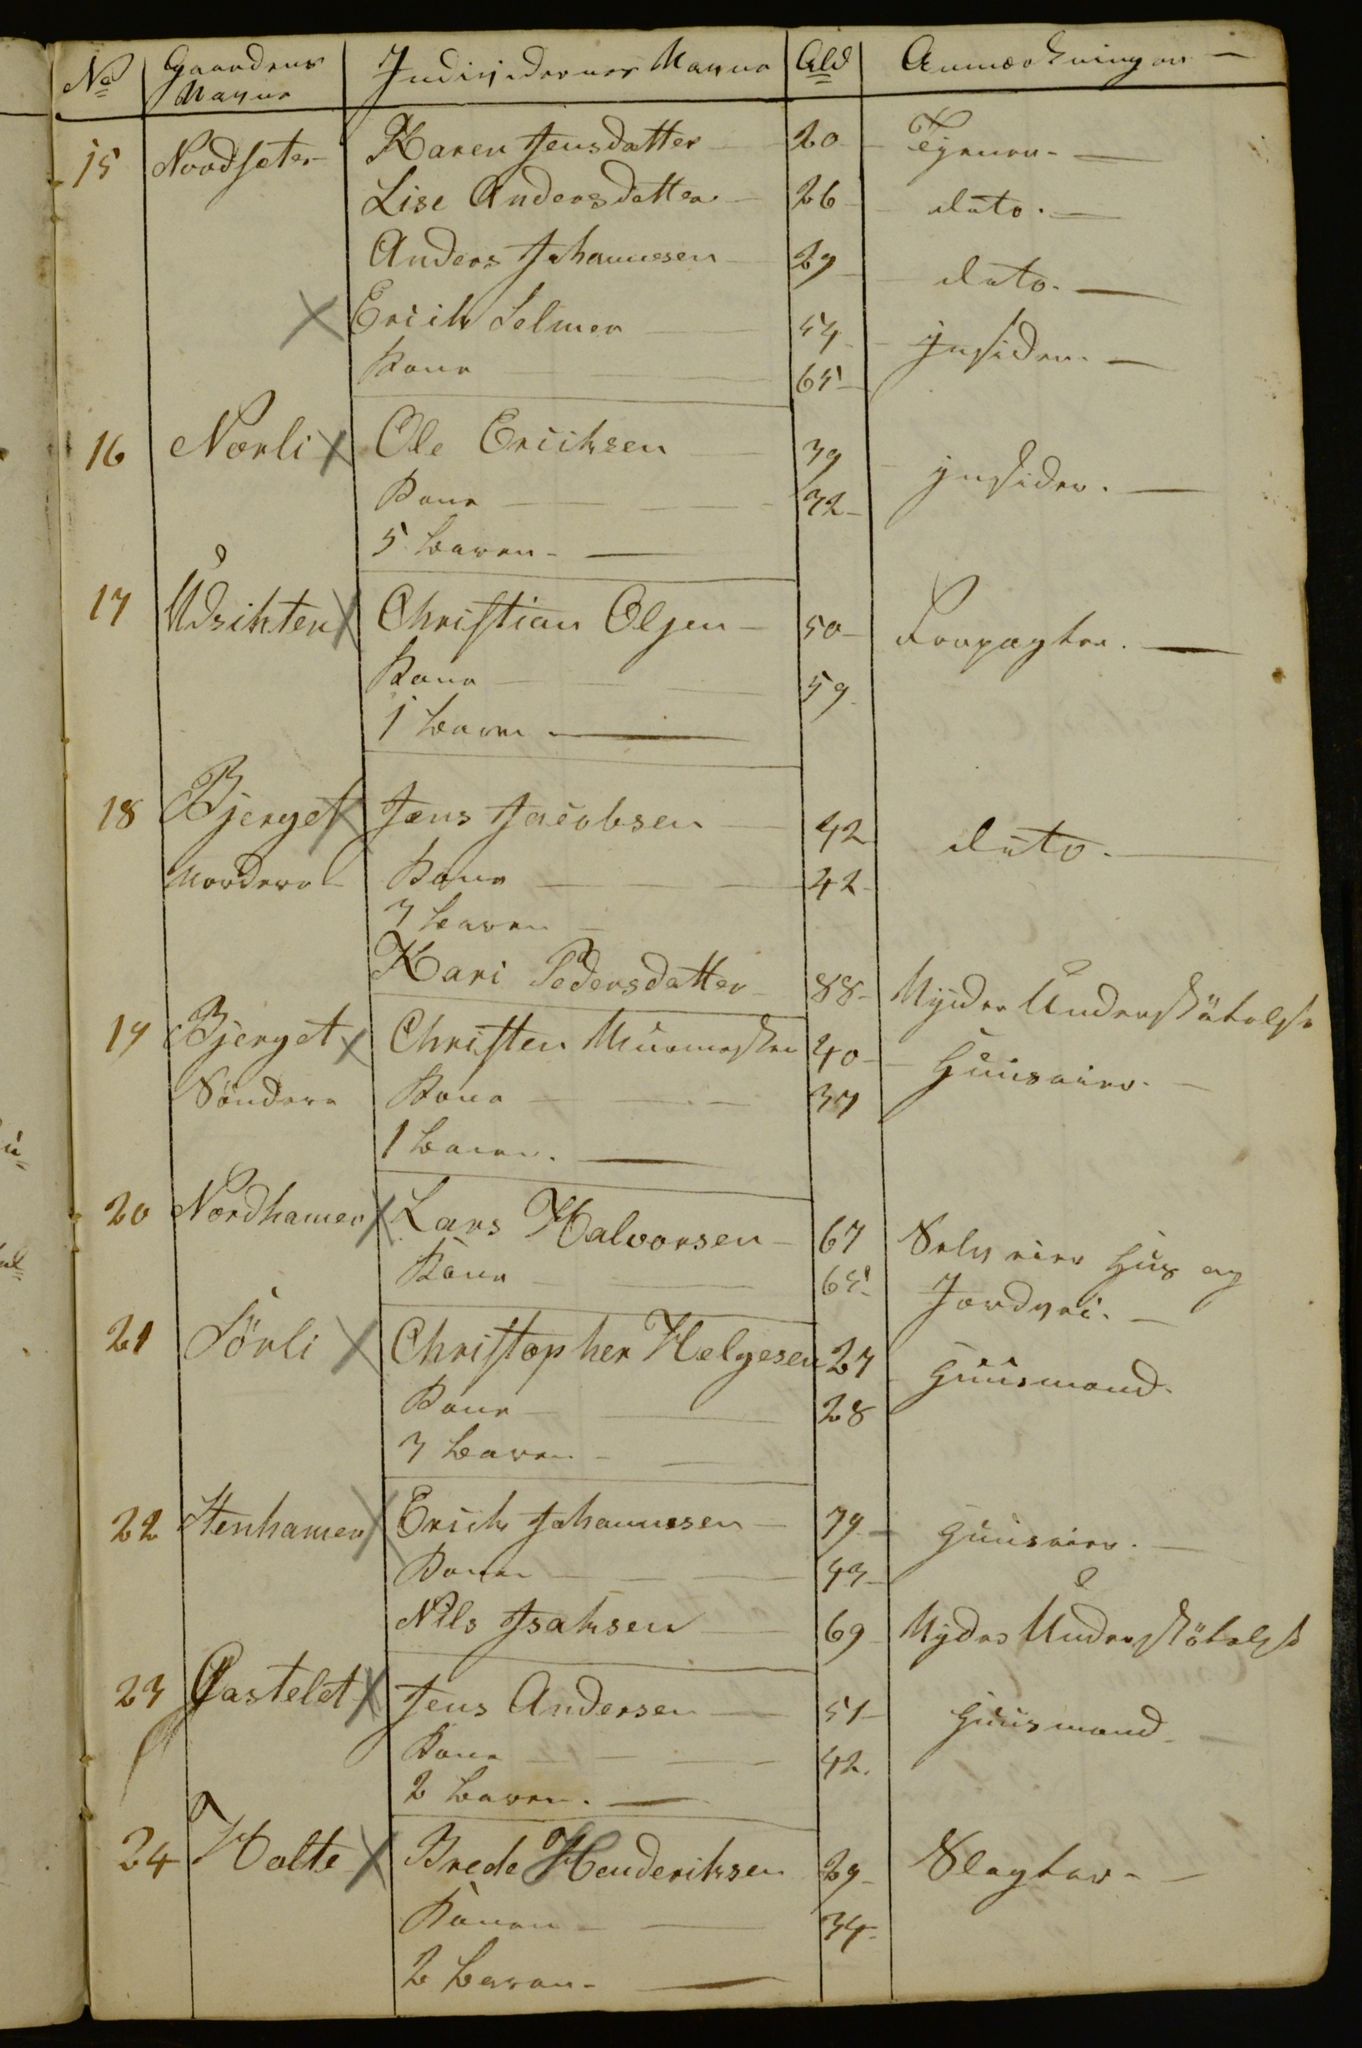 No Gaardens Navne Individernes Navne Ald Anmærkninger
15 Nordsæter Karen Jensdatter 20 Tjener
Lise Andersdatter 26 dito.
Anders Johannesen 29 dito.
Erich Selmer 54 Insider.
Kone 65
16 Nærli Ole Eriksen 39 Insider.
Kone 32
5 Børn
17 Udsikten Christian Olsen 50 Forpagter.
Kone 59
1 Barn
18 Bjerget Jens Jacobsen 42 dito.
Nordere Kone 42
3 Børn
Kari Pedersdatter 88 Nyder Understøtelse
19 Bjerget Christen Murmester 40 Huuseier.
Søndere Kone 37
1 Barn.
20 Nordhamer Lars Halvorsen 67 Selveier Hus og
Kone 65 Jordvei.
21 Sörli Christopher Helgesen 27 Huusmand.
Kone 28
3 Børn
22 Stenhamer Erich Johannesen 79 Huuseier.
Kone 43
Nils Isaksen 69 Nyder Understøtelse
23 Gastelet Jens Andersen 51 Huusmand
Kone 42.
2 Børn.
24 Holte Brede Henderiksen 29 Slagter
Konen 34
2 Børn